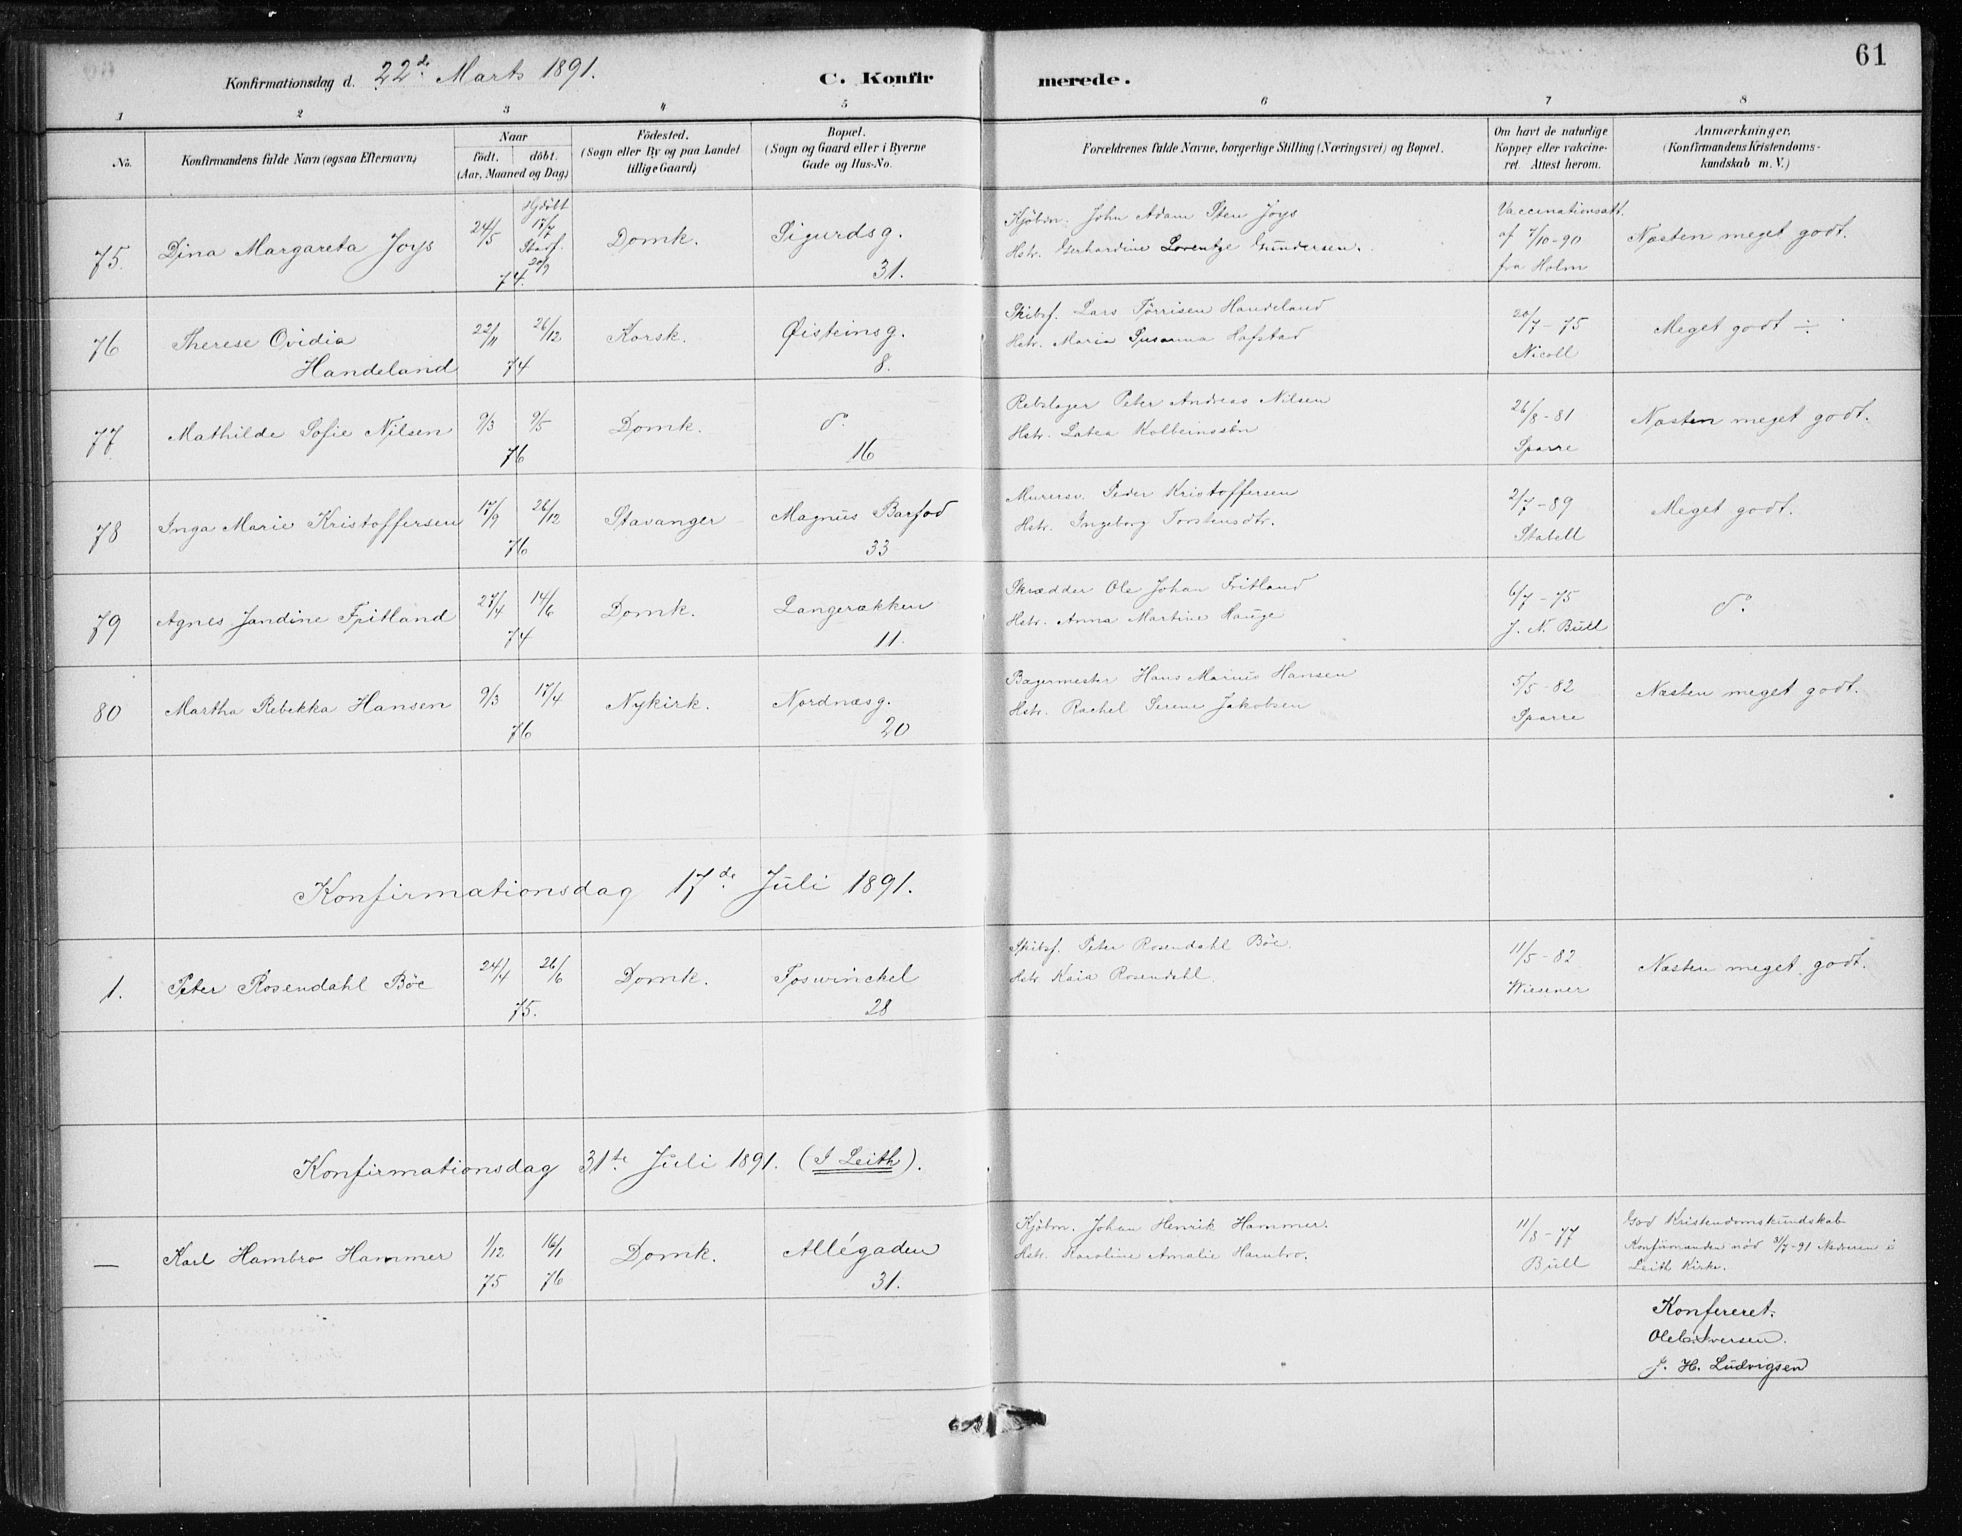 61
Konfirmationsdag d. 22de Marts 1891.
C. Konfirmerede.
1 2 3 4 5 6 7 8
No.
Konfirmandens fulde Navn (ogsaa Efternavn)
Naar
født. døbt.
(Aar, Maaned og Dag)
Fødested.
(Sogn eller By og paa Landet
tillige Gaard)
Bopæl.
(Sogn og Gaard eller i Byerne
Gade og Hus-No.
Forældrenes fulde Navne, borgerlige Stilling (Næringsvei) og Bopæl.
Om havt de naturlige
Kopper eller vakcine-
ret. Attest herom.
Anmærkninger,
(Konfirmandens Kristendoms-
kundskab m. V.)
75. Dina Margareta Joys
24/5
Hjdøbt
17/7
Stadf.
20/9
74.
Domk.
Sigurdsg.
31.
Kjøbm. John Adam Sten Joys
Hstr. Gerhardine Lorentze Gundersen.
Vaccinationsatt.
af 7/10-90
fra Holm
Næsten meget godt.
76 Therese Ovidia
Handeland
22/11 26/12
74
Korsk.
Øisteinsg.
8.
Skibsf. Lars Tørrisen Handeland
Hstr. Maria Susanna Hofstad
20/7-75
Nicoll
Meget godt ÷
77 Mathilde Sofie Nilsen
9/3 9/5
76
Domk.
do
16
Rebslager Peter Andreas Nilsen
Hstr. Latea Kolbeinssøn
26/8-81
Sparre
Næsten meget godt.
78 Inga Marie Kristoffersen
17/9 26/12
76
Stavanger
Magnus Barfod
33
Murersv. Peder Kristoffersen
Hstr. Ingeborg Torstensdtr.
2/7-89
Stabell
Meget godt.
79 Agnes Jandine Fritland
27/4 14/6
74
Domk.
Langerækken
11.
Skrædder Ole Johan Fritland
Hstr. Anna Martine Hauge
6/7-75
J. N. Bull
do
80 Martha Rebekka Hansen
9/3 17/4
76
Nykirk.
Nordnæsg.
20
Bagermester Hans Marius Hansen
Hstr. Rachel Serene Jakobsen
5/5-82
Sparre
Næsten meget godt.
Konfirmationsdag 17de Juli 1891.
1. Peter Rosendahl Böe
24/4 26/6
75.
Domk.
Foswinckel
28
Skibsf. Peter Rosendahl Böe.
Hstr. Kaia Rosendahl.
11/5-82
Wiesener
Næsten meget godt.
Konfirmationsdag 31te Juli 1891. (I Leith).
— Karl Hambro Hammer
1/12 16/1
75 76
Domk.
Allégaden
31.
Kjøbm. Johan Henrik Hammer.
Hstr. Karoline Amalie Hambro.
11/3-77
Bull
God Kristendomskundskab
Konfirmanden nød 31/7-91 Nadveren i
Leith Kirke.
Konfereret.
Ole Iversen.
J. H. Ludvigsen